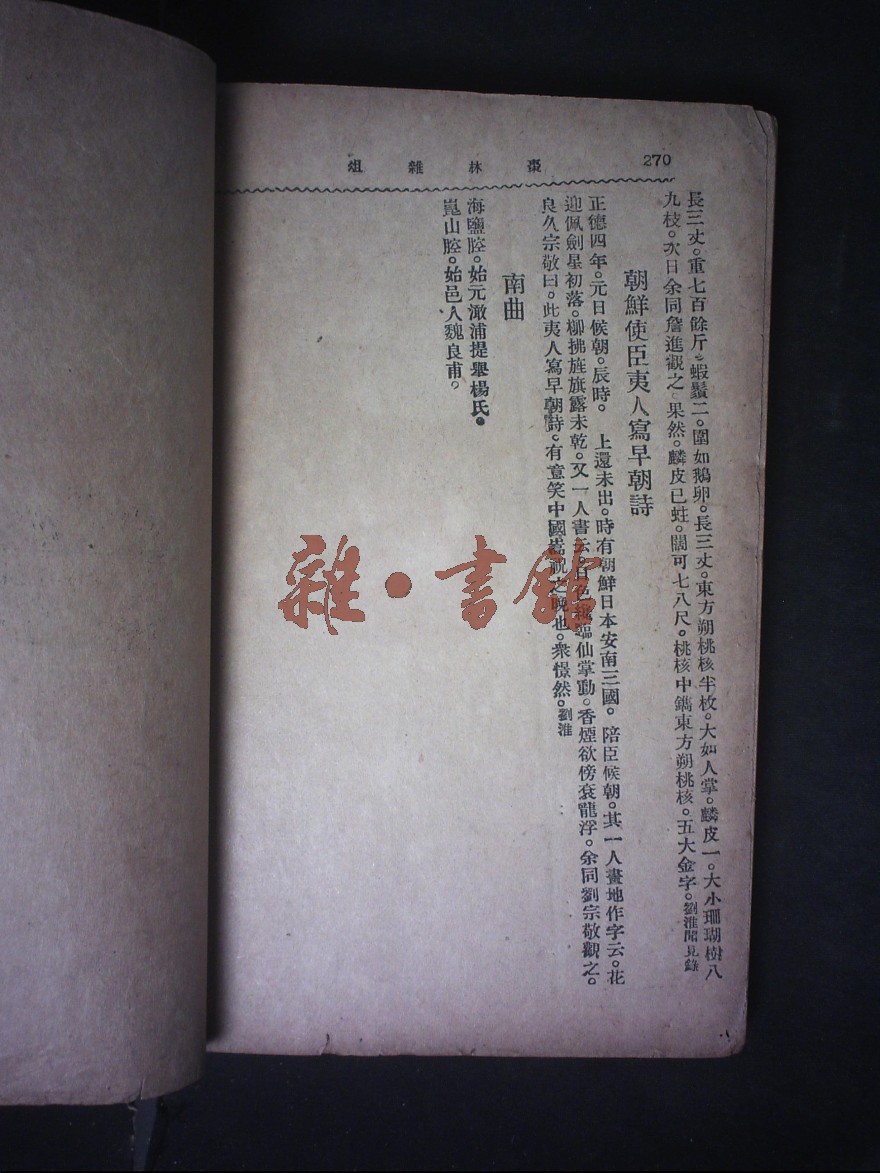 270
棗林雜俎
長三丈。重七百餘斤。蝦鬚二。圍如鵝卵。長三丈。東方朔桃核半枚。大如人掌。麟皮一。大小珊瑚樹八
九枝。次日余同詹進觀之。果然。麟皮已蛀。闊可七八尺。桃核中鐫東方朔桃核。五大金字。劉淮聞見錄
朝鮮使臣夷人寫早朝詩
正德四年。元日候朝。辰時。 上還未出。時有朝鮮日本安南三國。陪臣候朝。其一人畫地作字云。花
迎佩劍星初落。柳拂旌旗露未乾。又一人書云。日色纔臨仙掌動。香煙欲傍袞龍浮。余同劉宗敬觀之。
良久宗敬曰。此夷人寫早朝詩。有意笑中國之晚也。衆憬然。劉淮
南曲
海鹽腔。始元澉浦提舉楊氏。
崑山腔。始邑人魏良甫。
雜·書館